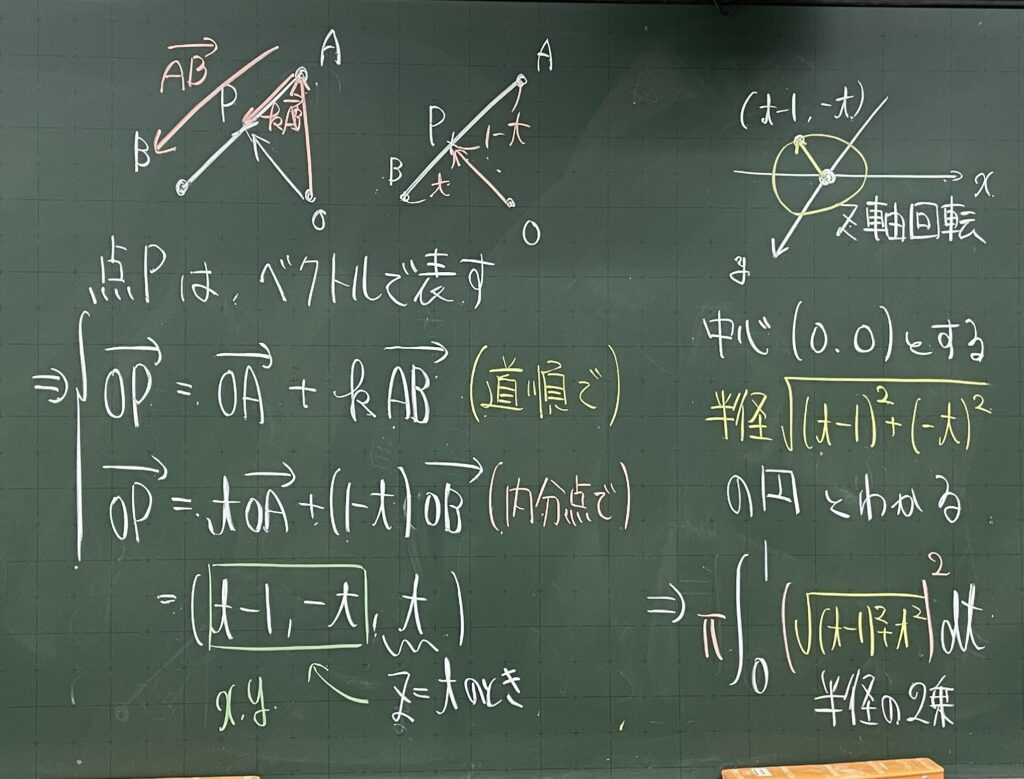 AB→
A
P
kAB→
B
O
A
P
1-t
B
t
O
(t-1, -t)
x
z軸回転
y
点Pは、ベクトルで表す
⇒{ OP→ = OA→ + kAB→ (道順で)
OP→ = tOA→ + (1-t)OB→ (内分点で)
= (t-1, -t, t)
x.y.
z=tのとき
中心(0.0)とする
半径√((t-1)²+(-t)²)
の円とわかる
⇒ π∫₀¹(√((t-1)²+t²))²dt
半径の2乗